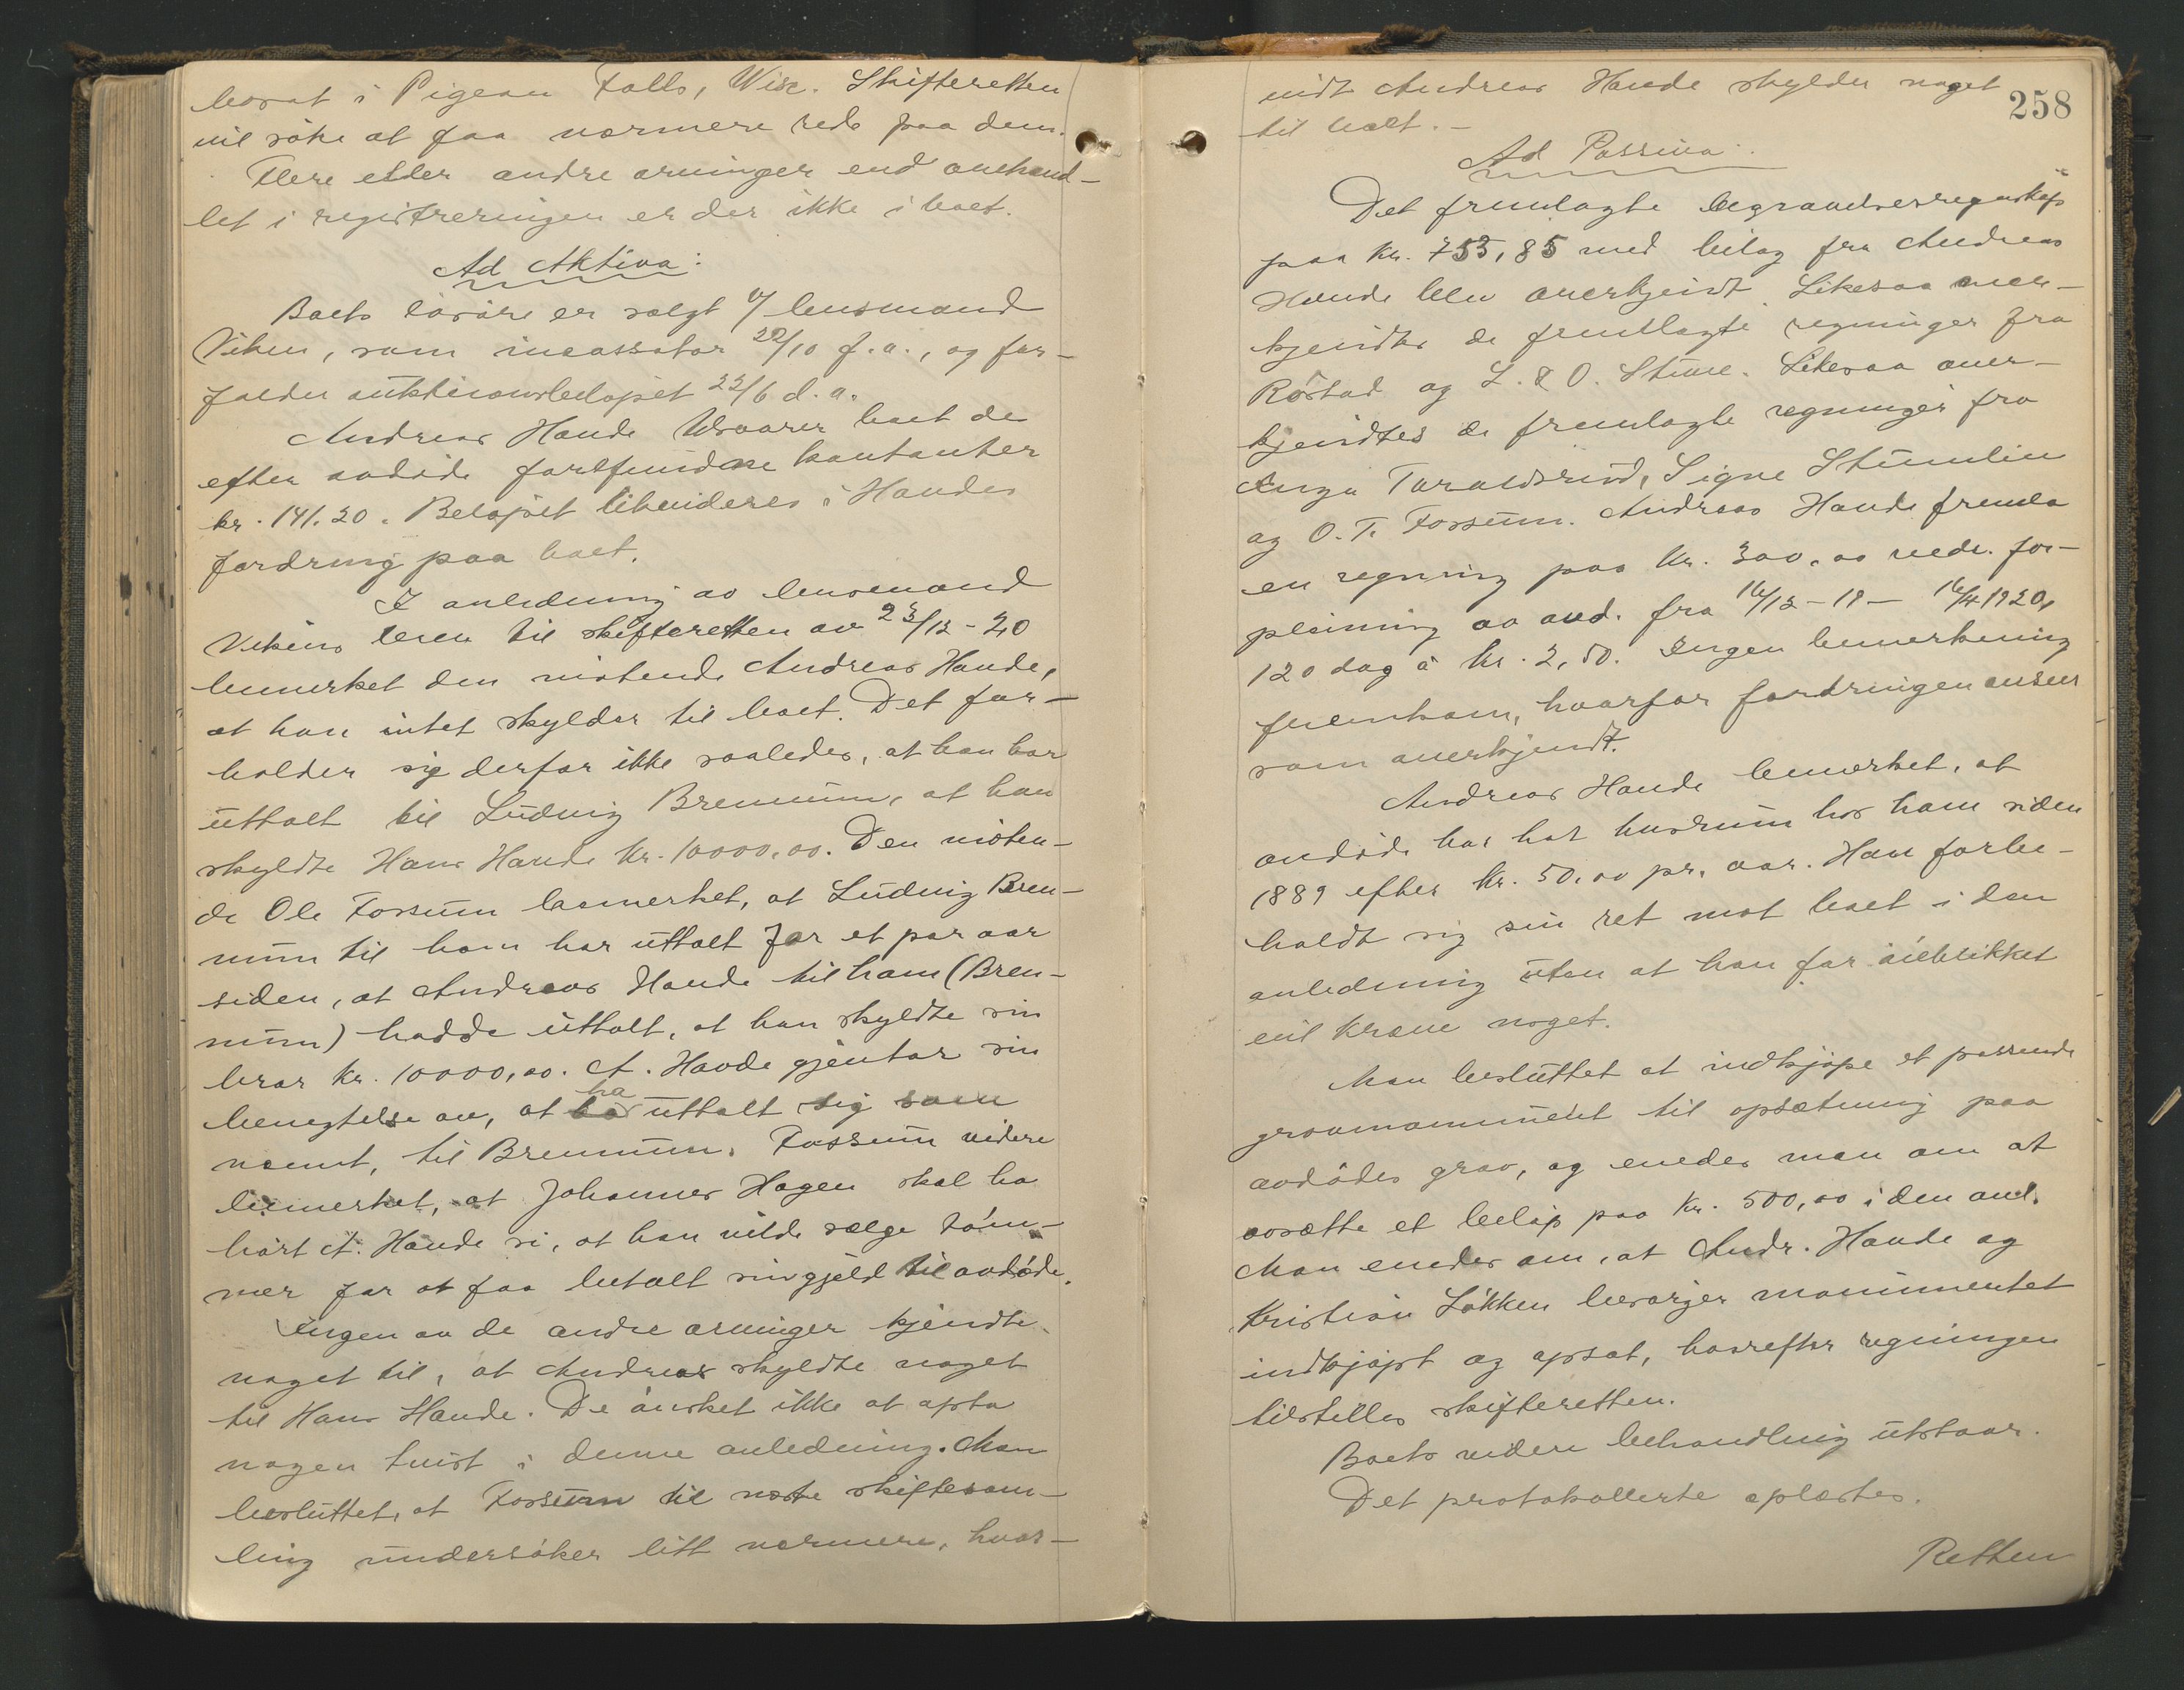 bosat i Pigeon Falls, Wisc. Skifteretten
vil söke at faa nærmere rede paa dem.
Flere eller andre arvinger end anhand-
let i registreringen er der ikke i boet.
Ad Aktiva:
Boets lösöre er solgt v/ lensmand
Viken, som incassator 22/10 f.a., og for-
falder auktionsbelöpet 22/6 d.a.
Andreas Haude tilsvarer boet de
efter avdöde forefundne kontanter
kr. 141.20. Belöpet likvideres i Haudes
fordring paa boet.
I anledning av lensmand
Vikens brev til skifteretten av 23/12-20
bemerket den mötende Andreas Haude,
at han intet skylder til boet. Det for-
holder sig derfor ikke saaledes, at han har
uttalt til Ludvig Brennum, at han
skyldte Hans Haude kr. 10000,00. Den möten-
de Ole Fossum bemerket, at Ludvig Bren-
num til ham har uttalt for et par aar
siden, at Andreas Haude til ham (Bren-
num) hadde uttalt, at han skyldte sin
bror kr. 10000,00. A. Haude gjentar sin
benegtelse av, at ha uttalt sig som
nævnt, til Brennum. Fossum videre
bemerket, at Johannes Hagen skal ha
hört A. Haude si, at han vilde sælge töm-
mer for at faa betalt sin gjeld til avdöde.
Ingen av de andre arvinger kjendte
noget til, at Andreas skyldte noget
til Hans Haude. De önsket ikke at opta
nogen tvist i denne anledning. Man
besluttet, at Fossum til næste skiftesam-
ling undersöker litt nærmere, hvor-
258
vidt Andreas Haude skylder noget
til boet.-
Ad Passiva:
Det fremlagte begravelsesregnskap
paa kr. 753,85 med bilag fra Andreas
Haude blev anerkjendt. Likesaa aner-
kjendtes de fremlagte regninger fra
Röstad og L. & O. Stuve. Likesaa aner-
kjendtes de fremlagte regninger fra
Inga Taraldsrud, Signe Stumlien
og O. T. Fossum. Andreas Haude fremla
en regning paa kr. 300,00 vedr. for-
pleining av avd. fra 16/12-19 - 16/4 1920,
120 dag á kr. 2,50. Ingen bemerkning
fremkom, hvorfor fordringen ansees
som anerkjendt.
Andreas Haude bemerket, at
avdöde har hat husrum hos ham siden
1889 efter kr. 50,00 pr. aar. Han forbe-
holdt sig sin ret mot boet i den
anledning uten at han for öieblikket
vil kræve noget.
Man besluttet at indkjöpe et passende
gravmonument til opsætning paa
avdödes grav, og enedes man om at
avsætte et belöp paa kr. 500,00 i den anl.
Man enedes om, at Andr. Haude og
Kristian Lökken besörger monumentet
indkjöpt og opsat, hvorefter regningen
tilstilles skifteretten.
Boets videre behandling utstaar.
Det protokollerte oplæstes.
Retten